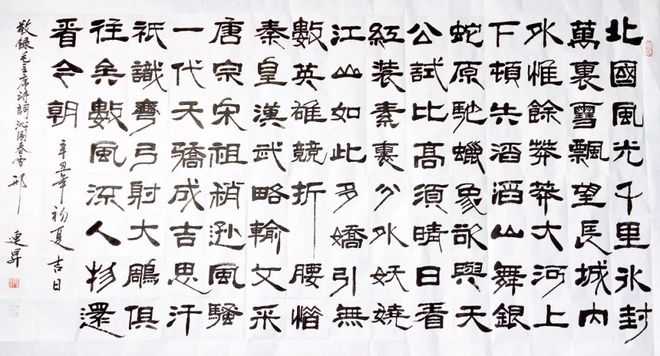 北國風光千里冰封
萬裏雪飄望長城內
外惟餘莽莽大河上
下頓失滔滔山舞銀
蛇原馳蠟象欲與天
公試比高須晴日看
紅裝素裹分外妖嬈
江山如此多嬌引無
數英雄競折腰惜
秦皇漢武略輸文采
唐宗宋祖稍遜風騷
一代天驕成吉思汗
祇識彎弓射大鵰俱
往矣數風流人物還
看今朝
辛丑年初夏吉日
敬録毛主席詩詞沁園春雪 邢連昇